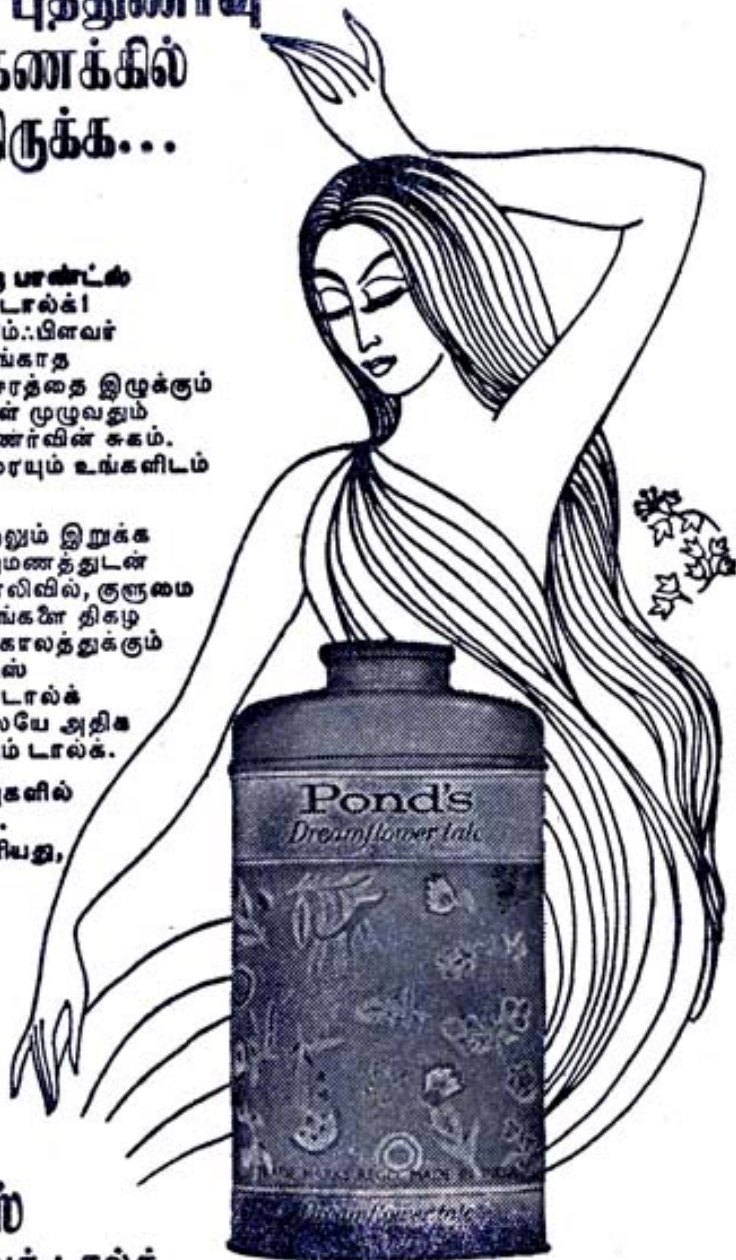 புத்துணர்வு
கணக்கில்
ருக்க...
பாண்ட்ஸ்
டால்க்!
ம்ஃபிளவர்
ங்காத
சரத்தை இழுக்கும்
ள் முழுவதும்
ணர்வின் சுகம்.
ரையும் உங்களிடம்
லும் இறுக்க
மணத்துடன்
லிவில், குளுமை
ங்களை திகழ
காலத்துக்கும்
ஸ்
டால்க்
லேயே அதிக
ம் டால்க்.
களில்
ரியது,
Pond's
Dreamflower talc
TRADE MARKS REGD. MADE IN
Dreamflower talc
ஸ்
டால்க்